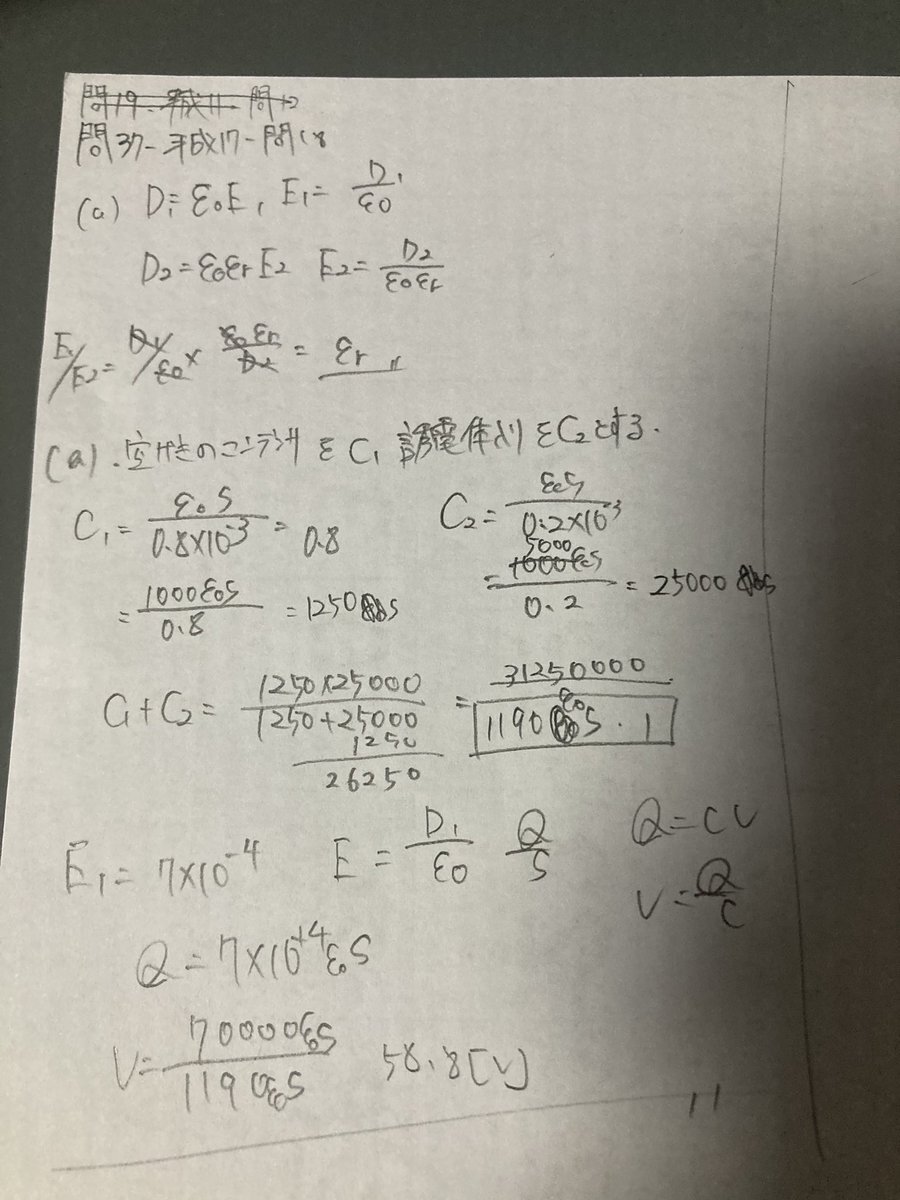 問19-平成11-問12
問37-平成17-問18
(a) D₁=ε₀E₁ E₁= D₁/ε₀
D₂=ε₀εr E₂ E₂= D₂/ε₀εr
E₁/E₂= D₁/ε₀ × ε₀εr/D₂ = εr 〃
(a). 空げきのコンデンサをC₁ 誘電体入りをC₂とする.
C₁= ε₀S/0.8×10⁻³ = 0.8 C₂= ε₀S/0.2×10⁻³
= 1000ε₀S/0.8 = 1250 S = 5000/0.2 = 25000 S
C₁+C₂= 1250×25000/1250+25000 = 31250000
1250
26250
1190ε₀S.1
E₁= 7×10⁻⁴ E= D₁/ε₀ Q/S Q=CV
V= Q/C
Q=7×10⁺⁴ε₀S
V= 70000ε₀S/1190ε₀S 58.8[V]